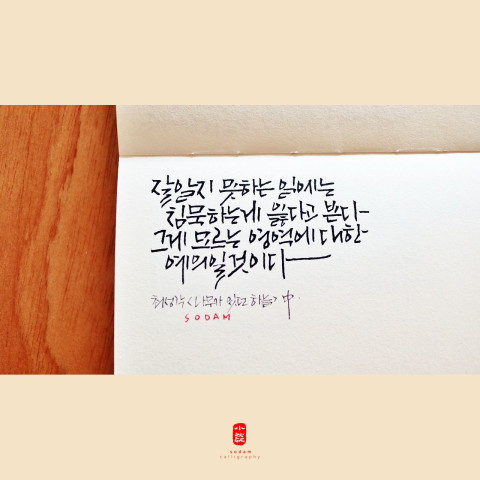 잘 알지 못하는 일에는
침묵하는게 옳다고 본다
그게 모르는 영역에 대한
예의일 것이다
<나무가 > 中
SODAM
sodam
calligraphy